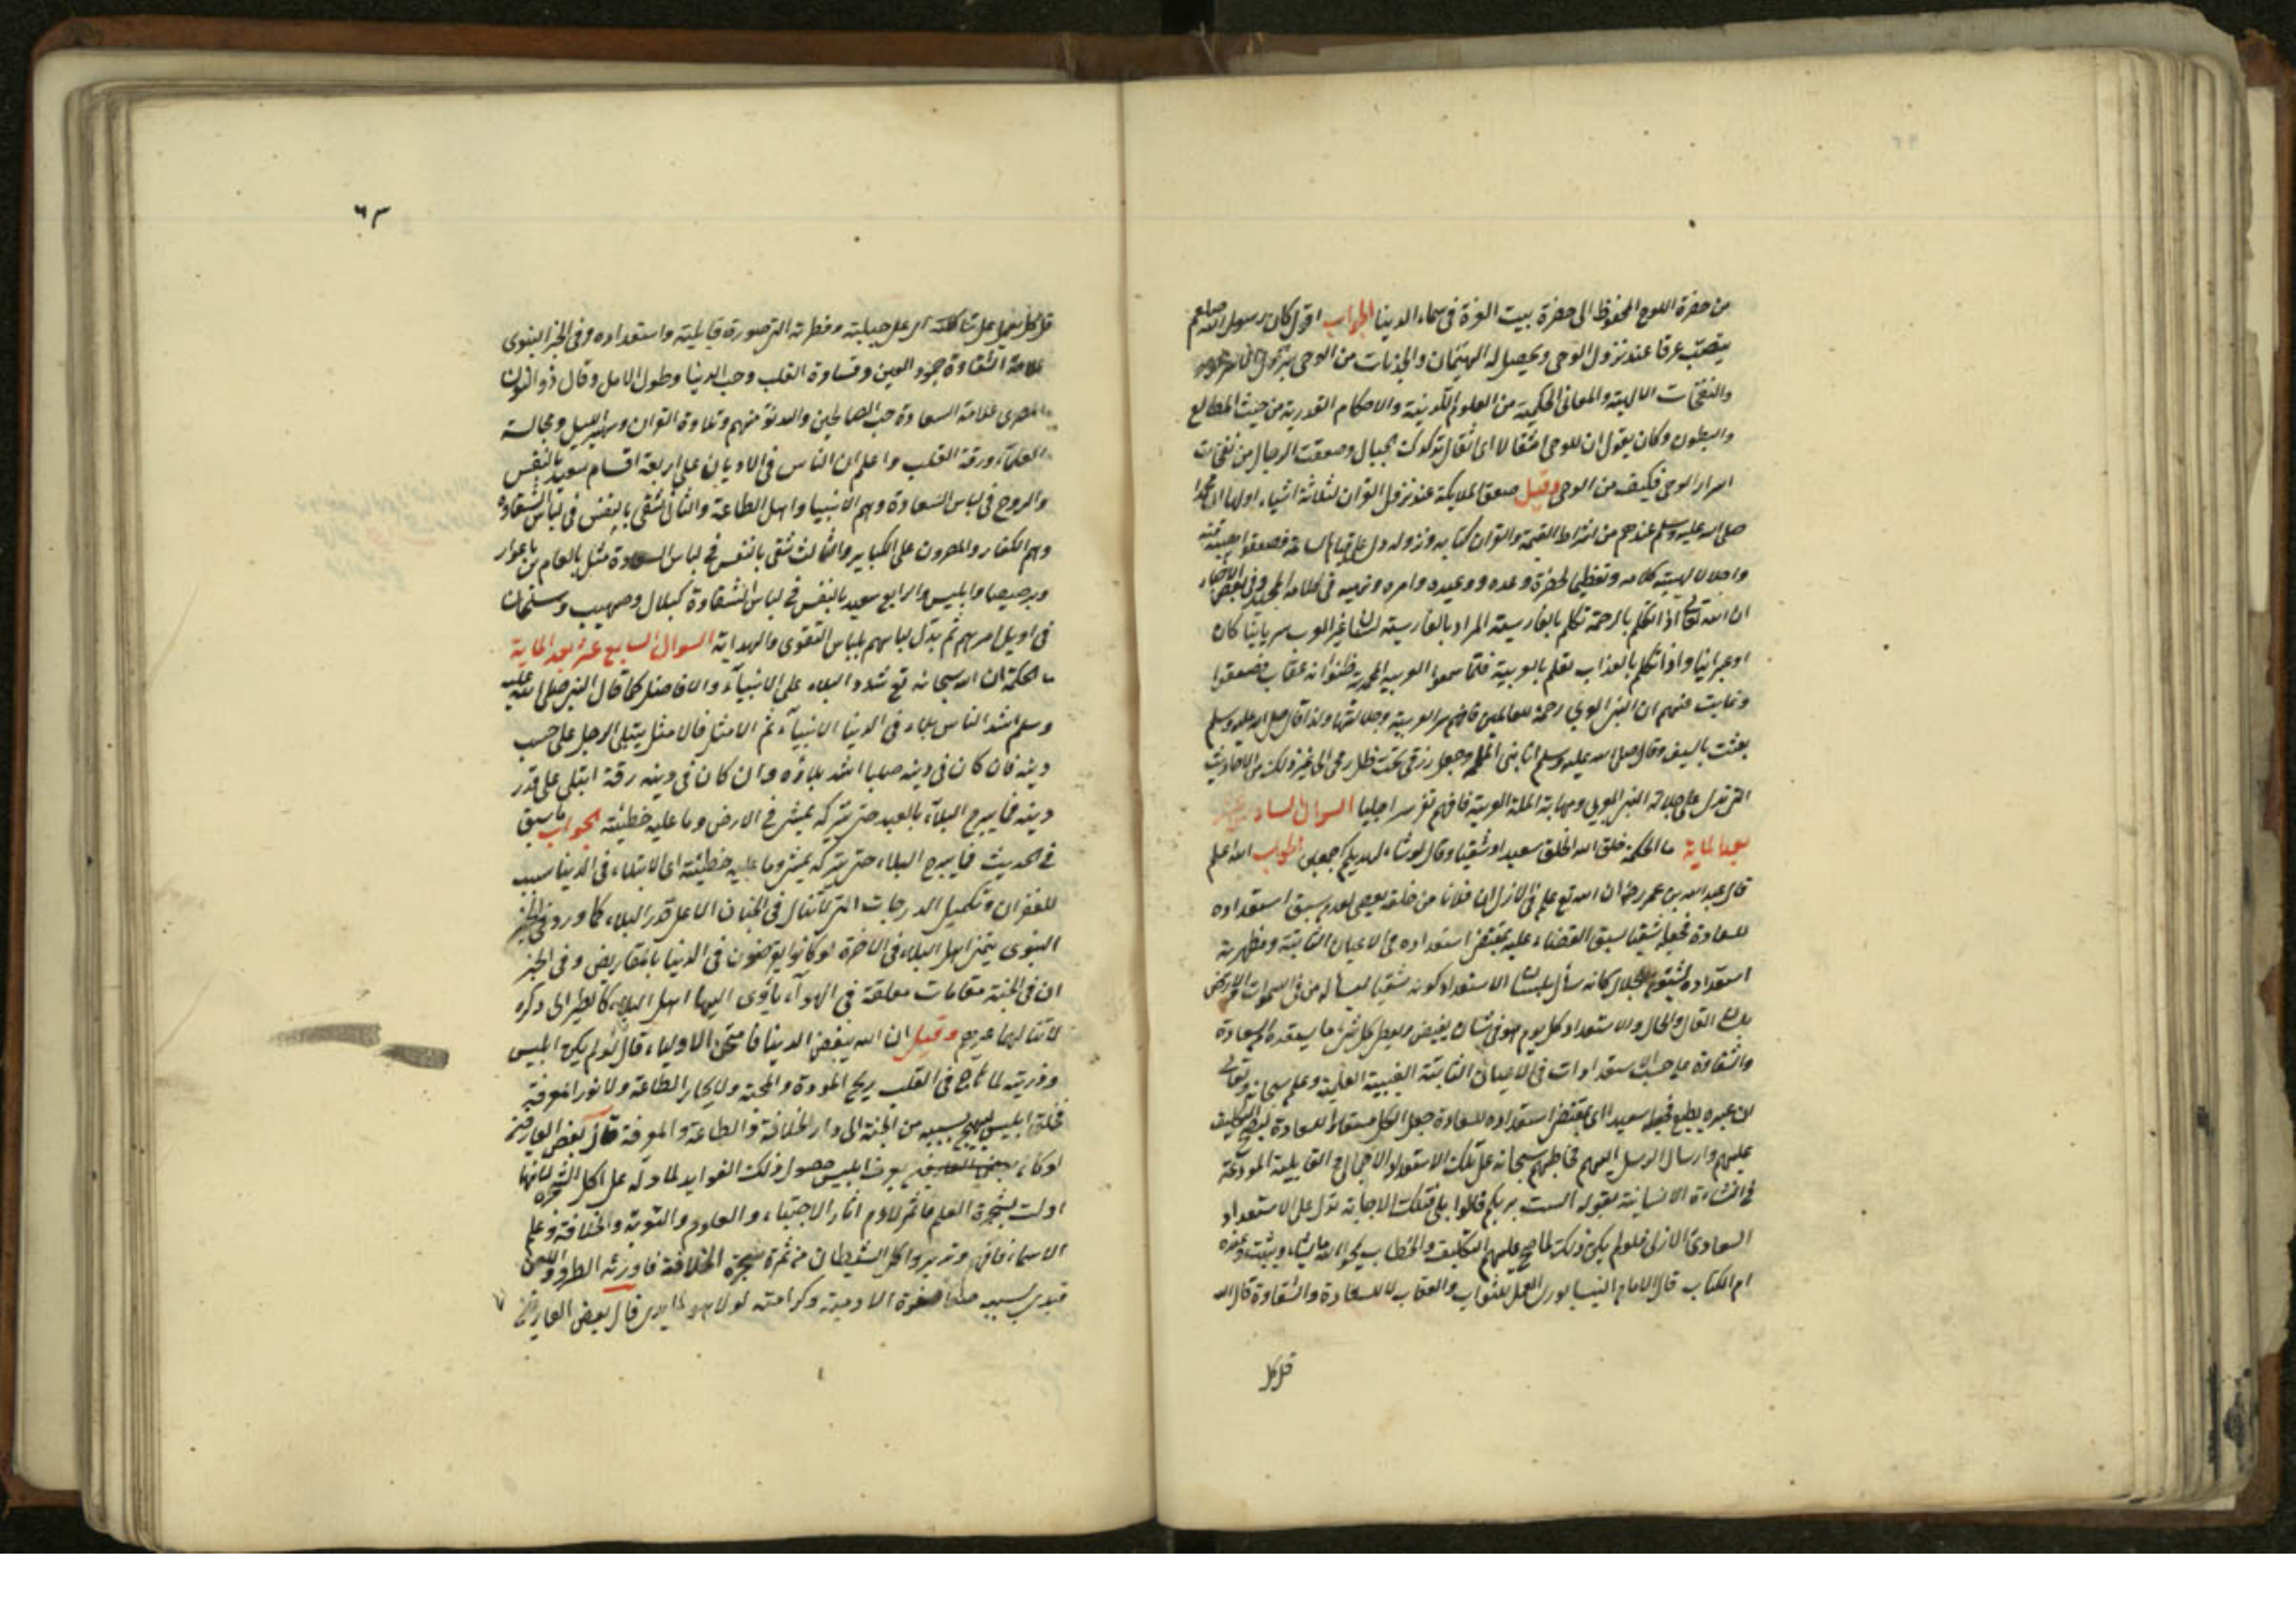 من حضرة اللوح المحفوظ الى حضرة بيت العزة فى سماء الدنيا الجواب اقول كان رسول الله صلعم
يتصبب عرقا عند نزول الوحى ويحصل له الهيمان والجذبات من الوحى
والنفخات الالهية والمعانى الحكمية من العلوم اللدنية والاحكام القدرية من حيث المطالع
والبطون وكان يقول ان للوحى اثقالا اى اثقال تدكدكت الجبال وصعقت الرجال من نفخات
اسرار الوحى فكيف من الوحى وقيل صعق الملايكة عند نزول القران لثلاثة اشياء اولها ان محمدا
صلى الله عليه وسلم عندهم من اشراط القيمة والقران كتابه ونزوله دل على قيام الساعة فصعقوا هيبة منه
واجلالا لهيبة كلامه وتعظيما لحضرة وعده ووعيده وامره ونهيه فى كلامه المجيد وفى بعض الاخبار
ان الله تعالى اذا تكلم بالرحمة تكلم بالفارسية المراد بالفارسية لسان غير العرب سريانيا كان
او عبرانيا واذا تكلم بالعذاب تكلم بالعربية فلما سمعوا العربية المحمدية ظنوا انه عقاب فصعقوا
منهم ان النبى العربى رحمة للعالمين فافهم سر العربية وجلالتها ولذا قال صلى الله عليه وسلم
بعثت بالسيف وقال صلى الله عليه وسلم انا نبى الملحمة وجعل رزقى تحت ظل رمحى الى غير ذلك من الاحاديث
التى تدل على جلالة النبى العربى ومهابة الملة العربية فافهم تفز سرا جليا السوال السادس عشر
بعد الماية ما الحكمة خلق الله الخلق سعيدا وشقيا وقال لو شاء لهديكم اجمعين الجواب الله اعلم
قال عبد الله بن عمر رضه ان الله تع علم فى الازل ان فلانا من خلقه يعصى لعدم سبق استعداده
للسعادة فجعله شقيا لسبق القضاء عليه بمقتضى استعداده فى الاعيان الثابتة ومظهرية
استعداده الجلال كانه سأل بلسان الاستعداد كونه شقيا يسأله من فى السموات والارض
بلسان القال والحال والاستعداد كل يوم هو فى شان يفيض ويعطى كل شىء ما يستعده من السعادة
والشقاوة على حسب الاستعدادات فى الاعيان الثابتة الغيبية العلمية وعلم سبحانه وتعالى
ان عبده يطيع فجعله سعيدا اى بمقتضى استعداده للسعادة جعل الكل مستعدا للسعادة ليصح التكليف
عليهم وارسال الرسل اليهم فخاطبهم سبحانه على تلك الاستعداد الاجمالى فى القابلية المودعة
فى النشاءة الانسانية بقوله الست بربكم قالوا بلى فتلك الاجابة تدل على الاستعداد
السعادى الازلى فلو لم يكن ذلك لما صح عليهم التكليف والخطاب يمحو الله ما يشاء ويثبت وعنده
ام الكتاب قال الامام النيسابورى العمل للثواب والعقاب لا للسعادة والشقاوة قال الله
قل كل
٦٣
قل كل يعمل على شاكلته اى على جبلته وفطرته التى صورة قابليته واستعداده وفى الخبر النبوى
علامة الشقاوة جمود العين وقساوة القلب وحب الدنيا وطول الامل وقال ذو النون
المصرى علامة السعادة حب الصالحين والدنو منهم وتلاوة القران وسهر الليل ومجالسة
العلماء ورقة القلب واعلم ان الناس فى الاديان على اربعة اقسام سعيد بالنفس
والروح فى لباس السعادة وهم الانبيا واهل الطاعة والثانى شقى بالنفس فى لباس الشقاوة
وهم الكفار والمصرون على الكبائر والثالث شقى بالنفس فى لباس السعادة مثل بلعام بن باعوار
وبرصيصا وابليس والرابع سعيد بالنفس فى لباس الشقاوة كبلال وصهيب وسلمان
فى اويل امرهم ثم بدل لباسهم بلباس التقوى والهداية السوال السابع عشر بعد الماية
ما الحكمة ان الله سبحانه تع شدد البلاء على الانبياء والافاضل كما قال النبى صلى الله عليه
وسلم اشد الناس بلاء فى الدنيا الانبياء ثم الامثل فالامثل يبتلى الرجل على حسب
دينه فان كان فى دينه صلبا اشتد بلاؤه وان كان فى دينه رقة ابتلى على قدر
دينه فما يبرح البلاء بالعبد حتى يتركه يمشى فى الارض وما عليه خطيئة الجواب ما سبق
فى الحديث فما يبرح البلاء حتى يتركه يمشى وما عليه خطيئة اى الابتلاء فى الدنيا سبب
للغفران وتكميل الدرجات التى لا تنال فى الجنان الا على قدر البلاء كما ورد فى الخبر
النبوى يتمنى اهل البلاء فى الاخرة لو كانوا يقرضون فى الدنيا بالمقاريض وفى الخبر
ان فى الجنة مقامات معلقة فى الهوآء ياوى اليها اهل البلاء كالطير الى وكره
لا تنالها غيرهم وقيل ان الله يبغض الدنيا فامتحن الاولياء قال لو لم يكن ابليس
وذريته لما هاج فى القلب ريح المودة والمحبة ولا بحار الطاعة ولا نور المعرفة
فخلق ابليس ليهيج بسببه من الجنة الى دار الخلافة والطاعة والمعرفة قال بعض العارفين
لو كان يعرف ابليس حصول ذلك الفوايد لما دله على اكل الشجرة لانها
اولت بشجرة العلم فاثمر لادم اثار الاجتباء والعلوم والتوبة والخلافة وعلم
الاسماء فافهم وتدبر واكل الشيطان من ثمرة شجرة الخلافة فاورثه الطرد واللعن
فبدى بسببه صفوة الادمية وكرامته لولا هو لما بدى قال بعض العارفين